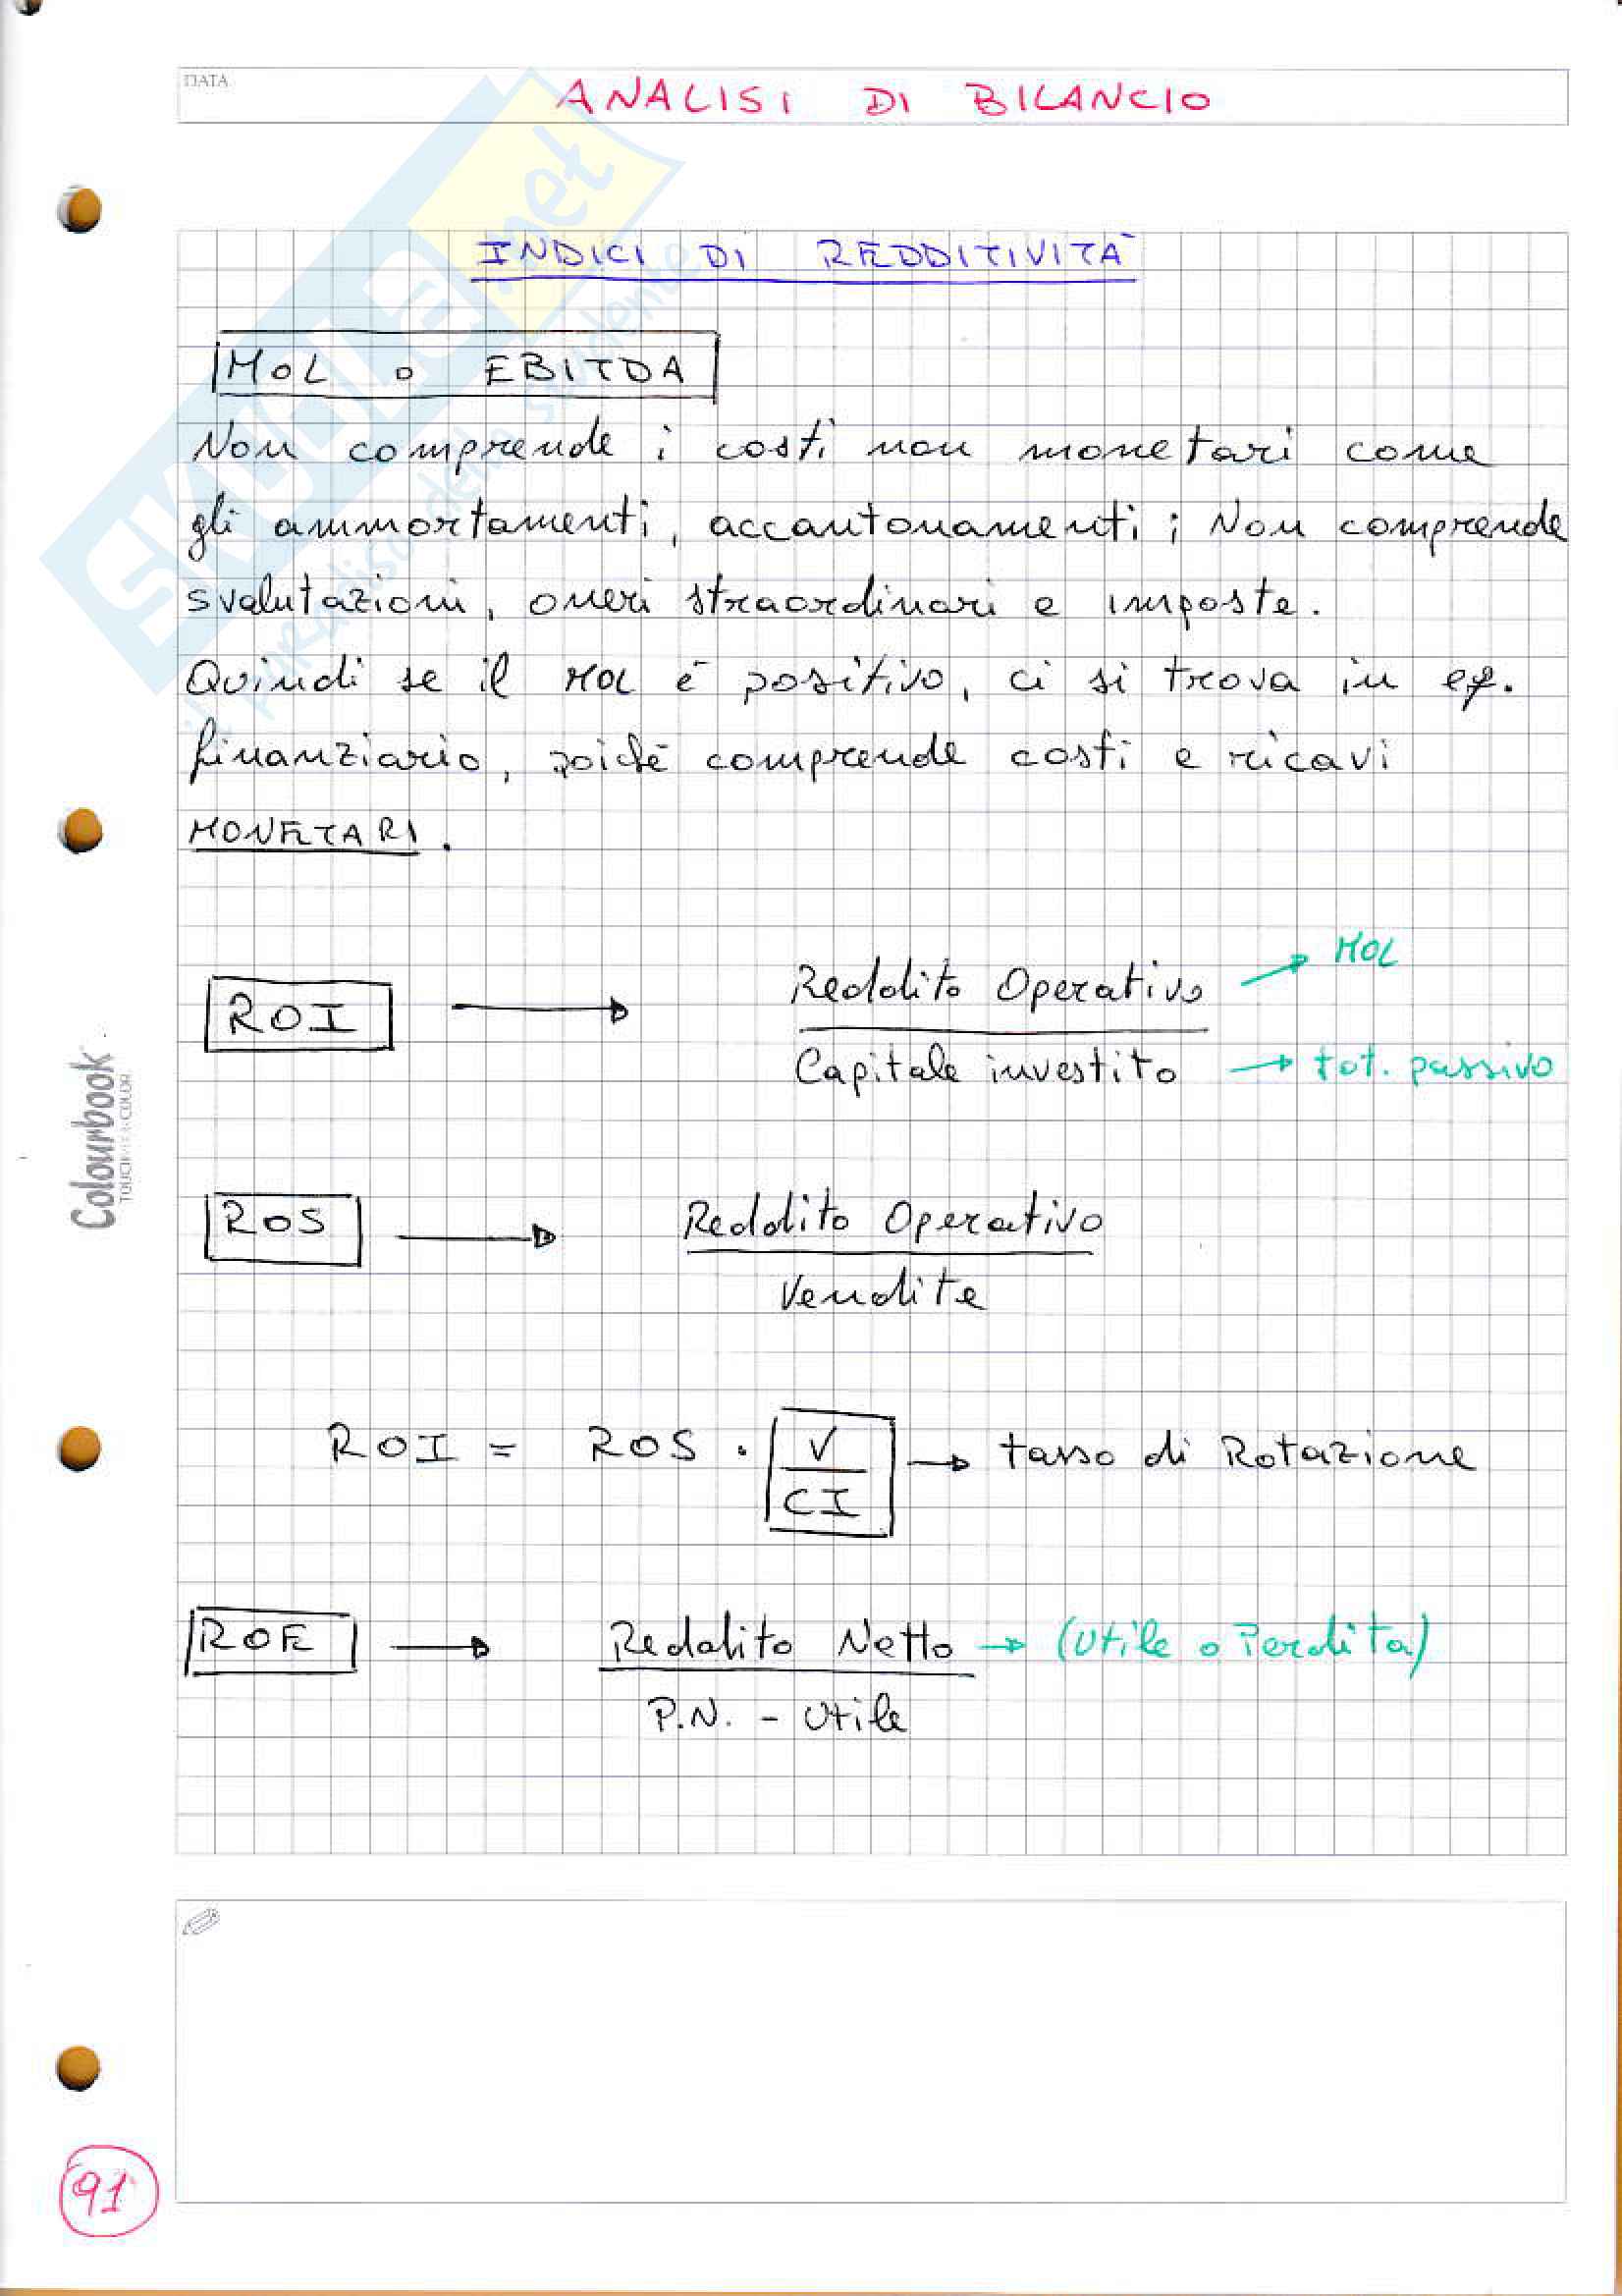 DATA
ANALISI DI BILANCIO
INDICI DI REDDITIVITÀ
MOL o EBITDA
Non comprende i costi non monetari come
gli ammortamenti, accantonamenti; Non comprende
svalutazioni, oneri straordinari e imposte.
Quindi se il MOL è positivo, ci si trova in eq.
finanziario, poichè comprende costi e ricavi
MONETARI.
ROI → Reddito Operativo → MOL
Capitale investito → tot. passivo
ROS → Reddito Operativo
Vendite
ROI = ROS · V → tasso di Rotazione
CI
ROE → Reddito Netto → (Utile o Perdita)
P.N. - Utile
Colourbook
91
SKUOLA.net
il paradiso dello studente